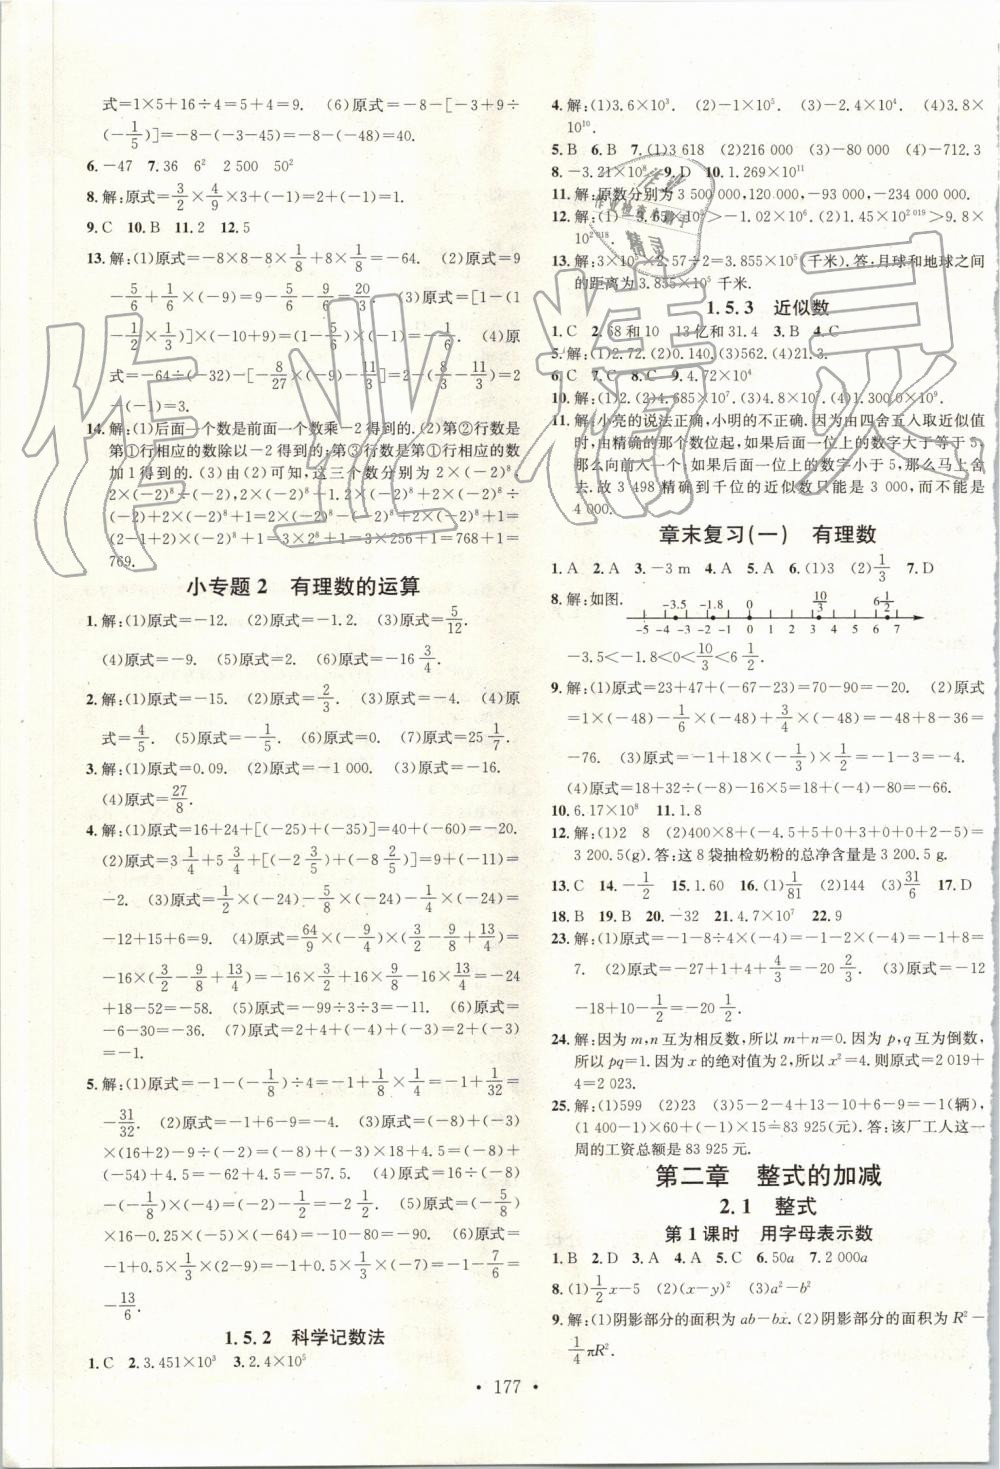 式=1×5+16÷4=5+4=9. (6)原式=-8-[-3+9÷
(-1/5)]=-8-(-3-45)=-8-(-48)=40.
6.-47 7.36 6² 2 500 50²
8.解:原式=3/2×4/9×3+(-1)=2+(-1)=1.
9.C 10.B 11.2 12.5
13.解:(1)原式=-8×8-8×1/8+8×1/8=-64. (2)原式=9
-5/6+1/6×(-9)=9-5/6-9/6=20/3. (3)原式=[1-(1
)]×(-10+9)=(1-5/6)×(-1)=-1/6. (4)原
式=-64÷(-32)-[-8/27×(-9/8)-11/3]=2-(1/3-11/3)=2
-(-1)=3.
14.解:(1)后面一个数是前面一个数乘-2得到的.(2)第②行数是
第①行相应的数除以-2得到的;第③行数是第①行相应的数
加1得到的.(3)由(2)可知,这三个数分别为2×(-2)⁸,
2×(-2)⁸÷(-2),2×(-2)⁸+1.2×(-2)⁸+2×(-2)⁸÷
(-2)+2×(-2)⁸+1=2×(-2)⁸-(-2)⁸+2×(-2)⁸+1=
(2-1+2)×(-2)⁸+1=3×2⁸+1=3×256+1=768+1=
769.
小专题2 有理数的运算
1.解:(1)原式=-12. (2)原式=-1.2. (3)原式=5/12.
(4)原式=-9. (5)原式=2. (6)原式=-16 3/4.
2.解:(1)原式=-15. (2)原式=2/3. (3)原式=-4. (4)原
式=4/5. (5)原式=-1/5. (6)原式=0. (7)原式=25 1/7.
3.解:(1)原式=0.09. (2)原式=-1 000. (3)原式=-16.
(4)原式=27/8.
4.解:(1)原式=16+24+[(-25)+(-35)]=40+(-60)=-20.
(2)原式=3 1/4+5 3/4+[(-2 3/5)+(-8 2/5)]=9+(-11)=
-2. (3)原式=1/2×(-24)-5/8×(-24)-1/4×(-24)=
-12+15+6=9. (4)原式=64/9×(-9/4)×(3/2-9/8+13/4)=
-16×(3/2-9/8+13/4)=-16×3/2+16×9/8-16×13/4=-24
+18-52=-58. (5)原式=-99÷3÷3=-11. (6)原式=
-6-30=-36. (7)原式=2+4+(-4)+(-3)=2+(-3)
=-1.
5.解:(1)原式=-1-(-1/8)÷4=-1+1/8×1/4=-1+1/32=
-31/32. (2)原式=-1+6-9=-4. (3)原式=(-8)+(-3)
×(16+2)-9÷(-2)=-8+(-3)×18+4.5=(-8)+
(-54)+4.5=-62+4.5=-57.5. (4)原式=16÷(-8)
-(-1/8)×(-4)=(-2)-1/2=-2 1/2. (5)原式=(-5/8)
×16-0.25×(-5)×(-16)=-10-20=-30. (6)原式=
-1+0.5×1/3×(2-9)=-1+0.5×1/3×(-7)=-1-7/6=
-13/6.
1.5.2 科学记数法
1.C 2.3.451×10³ 3.2.4×10⁵
4.解:(1)3.6×10³. (2)-1×10⁵. (3)-2.4×10⁴. (4)3.8×
10¹⁰.
5.B 6.B 7.(1)3 618 (2)216 000 (3)-80 000 (4)-712.3
8.-3.21×10⁸ 9.D 10.1.269×10¹¹
11.解:原数分别为3 500 000,120 000,-93 000,-234 000 000.
12.解:(1)-3.65×10⁵>-1.02×10⁶. (2)1.45×10²⁰¹⁹>9.8×
10²⁰¹⁸.
13.解:3×10⁵×2.57÷2=3.855×10⁵(千米).答:月球和地球之间
的距离为3.855×10⁵千米.
1.5.3 近似数
1.C 2.68和10 13亿和31.4 3.B 4.C
5.解:(1)2.72.(2)0.140.(3)562.(4)21.3.
6.C 7.C 8.C 9.4.72×10⁴
10.解:(1)2.(2)4.685×10⁷.(3)4.8×10⁷.(4)1.300 0×10⁹.
11.解:小亮的说法正确,小明的不正确. 因为由四舍五入取近似值
时,由精确的那个数位起,如果后面一位上的数字大于等于5,
那么向前入一个;如果后面一位上的数字小于5,那么马上舍
去.故3 498精确到千位的近似数只能是3 000,而不能是
4 000.
章末复习(一) 有理数
1.A 2.A 3.-3 m 4.A 5.A 6.(1)3 (2)1/3 7.D
8.解:如图.
-3.5 -1.8 0 10/3 6 1/2
-5 -4 -3 -2 -1 0 1 2 3 4 5 6 7
-3.5<-1.8<0<10/3<6 1/2.
9.解:(1)原式=23+47+(-67-23)=70-90=-20. (2)原式
=1×(-48)-1/6×(-48)+3/4×(-48)=-48+8-36=
-76. (3)原式=-1+18×(-1/3)×1/2=-1-3=-4.
(4)原式=18+32÷(-8)-16×5=18+(-4)-80=-66.
10.6.17×10⁸ 11.1.8
12.解:(1)2 8 (2)400×8+(-4.5+5+0+5+0+0+2-5)=
3 200.5(g).答:这8袋抽检奶粉的总净含量是3 200.5 g.
13.C 14.-1/2 15.1.60 16.(1)1/81 (2)144 (3)31/6 17.D
18.B 19.B 20.-32 21.4.7×10⁷ 22.9
23.解:(1)原式=-1-8÷4×(-4)=-1-2×(-4)=-1+8=
7. (2)原式=-27+1+4+4/3=-20 2/3. (3)原式=-12
-18+10-1/2=-20 1/2.
24.解:因为m,n互为相反数,所以m+n=0.因为p,q互为倒数,
所以pq=1.因为x的绝对值为2,所以x²=4.则原式=2 019+
4=2 023.
25.解:(1)599 (2)23 (3)5-2-4+13-10+6-9=-1(辆),
(1 400-1)×60+(-1)×15=83 925(元).答:该厂工人这一
周的工资总额是83 925元.
第二章 整式的加减
2.1 整式
第1课时 用字母表示数
1.B 2.D 3.A 4.A 5.C 6.50a 7.2 000a
8.(1)1/2x-5 (2)(x-y)² (3)a²-b²
9.解:(1)阴影部分的面积为ab-bx.(2)阴影部分的面积为R²-
1/4πR².
• 177 •
作业精灵